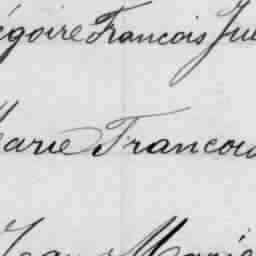 égoire Francois Jul
Marie Francois
Jean Marie